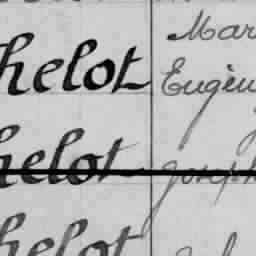 Mar
helot Eugèn
helot Joseph
helot